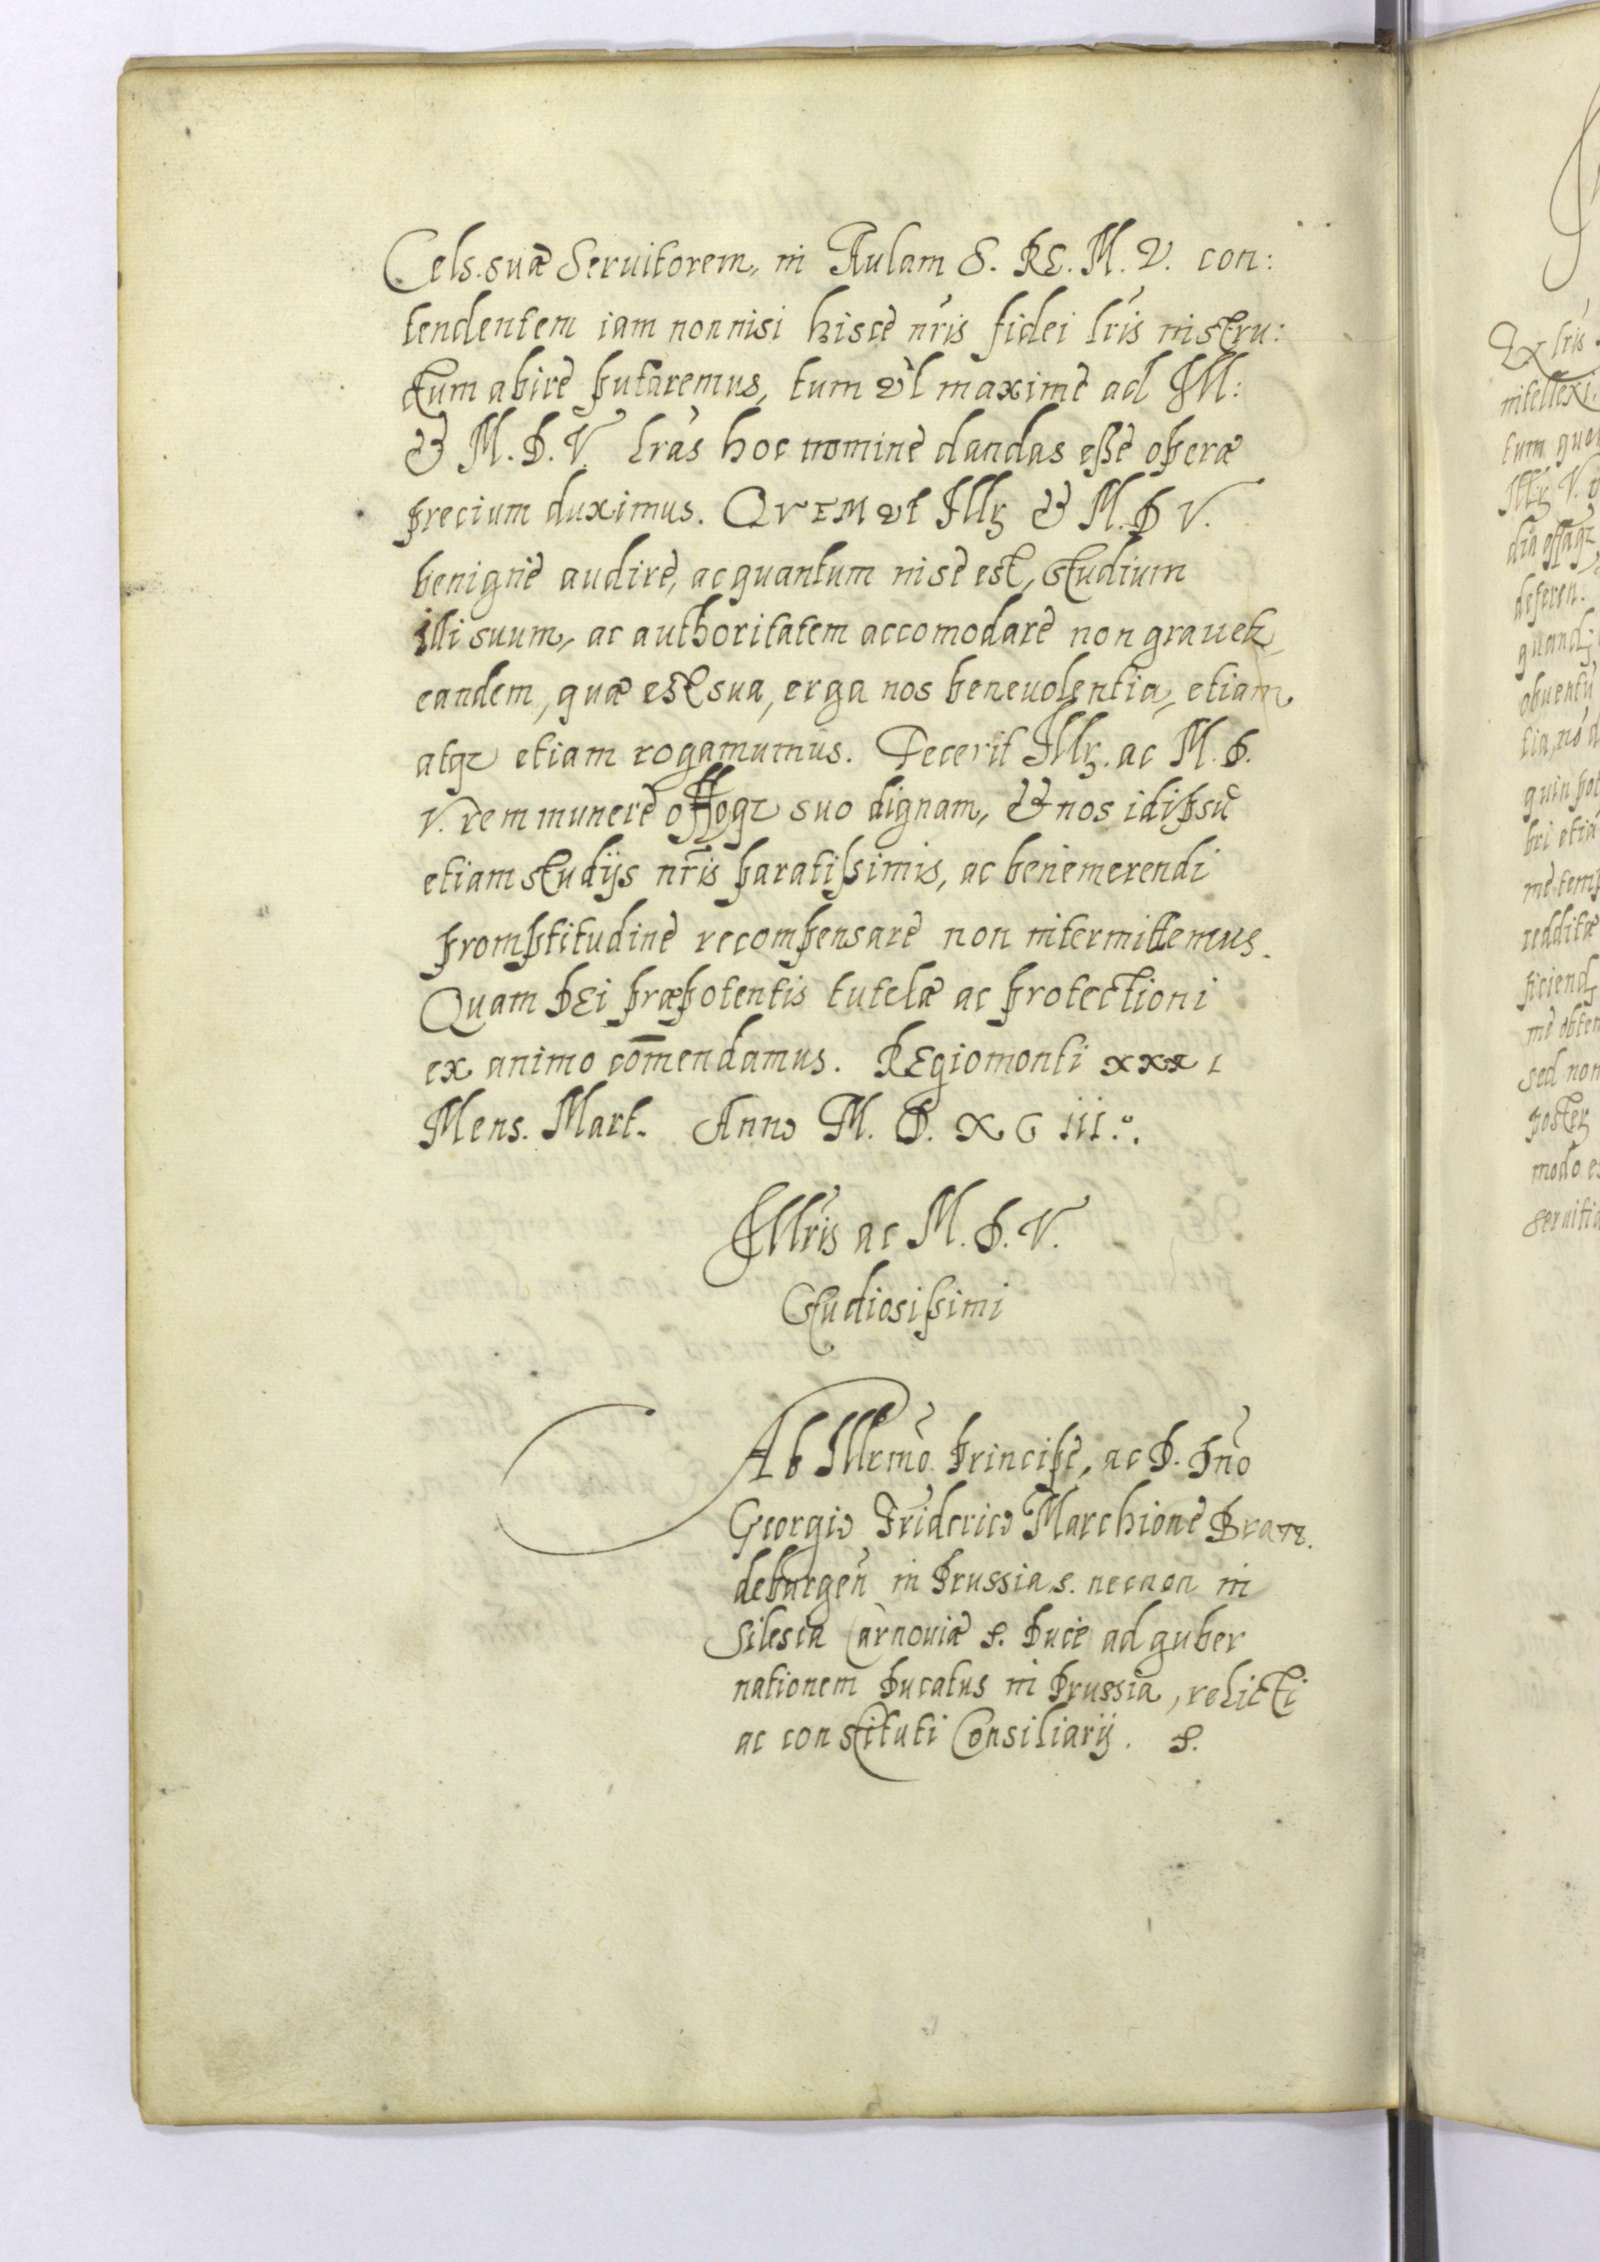 Cels. suæ Seruitorem, in Aulam S. RE. M. V. con:
tendentem iam non nisi hisce nr̃is fidei lr̃is instru:
ctum abire putaremus, tum vl̃ maxime ad Ill:
& M. D. V. lr̃as hoc nomine dandas esse operæ
precium duximus. QVEM vt Illꝫ & M. D V.
benigne audire, ac quantum in se est, studium
illi suum, ac authoritatem accomodare non grauetꝛ
eandem, quæ est sua, erga nos beneuolentia, etiam
atqꝫ etiam rogamumus. Fecerit Illꝫ. ac M. D.
V. rem munere offoqꝫ suo dignam, & nos idipsũ
etiam studijs nr̃is paratißimis, ac benemerendi
promptitudine recompensare non intermittemus.
Quam DEi præpotentis tutelæ ac protectioni
ex animo com̃endamus. REgiomonti xxx i
Mens. Mart. Anno M. D. X C iii.º.
Illr̃is ac M. D. V.
Studiosißimi
Ab Illrmõ. Principe, ac D. Dnõ
Georgio Friderico Marchione Bran.
deburgeñ in Prussia, s. necnon in
Silesia Carnouiæ s. Duce ad guber
nationem Ducatus in Prussia, relicti
ac constituti Consiliarij. s.
Ex lr̃is
intellexi,
tum qua
Illꝫ V.
deferen.
quandꝫ
obuentũ
tia, nõ a
quin pot
bri etiã
me temp
redditæ
ficiendꝫ
me obten
sed non
poster
modo es
seruitia